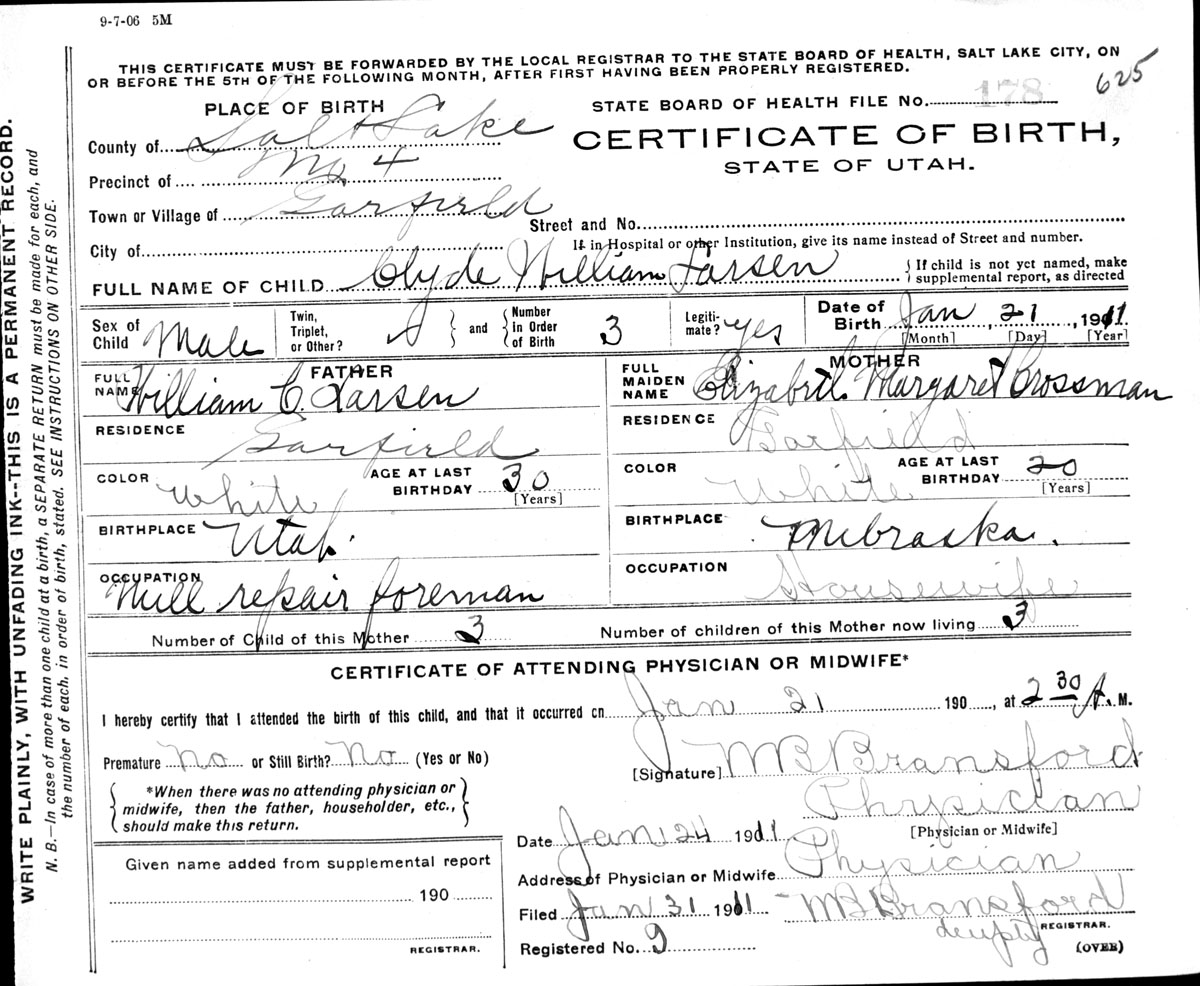 9-7-06 5M
THIS CERTIFICATE MUST BE FORWARDED BY THE LOCAL REGISTRAR TO THE STATE BOARD OF HEALTH, SALT LAKE CITY, ON
OR BEFORE THE 5TH OF THE FOLLOWING MONTH, AFTER FIRST HAVING BEEN PROPERLY REGISTERED.
625
PLACE OF BIRTH
STATE BOARD OF HEALTH FILE No. 178
County of Salt Lake
CERTIFICATE OF BIRTH,
STATE OF UTAH.
Precinct of No. 4
Town or Village of Garfield
Street and No.
City of
If in Hospital or other Institution, give its name instead of Street and number.
FULL NAME OF CHILD Clyde William Larsen
{ If child is not yet named, make
supplemental report, as directed
Sex of Child Male
Twin, Triplet, or Other?
and
Number in Order of Birth 3
Legiti-mate? yes
Date of Birth Jan 21, 1911
[Month] [Day] [Year]
FATHER
FULL NAME William C. Larsen
RESIDENCE Garfield
COLOR White
AGE AT LAST BIRTHDAY 30
[Years]
BIRTHPLACE Utah.
OCCUPATION Mill repair foreman
MOTHER
FULL MAIDEN NAME Elizabeth Margaret Crossman
RESIDENCE Garfield
COLOR White
AGE AT LAST BIRTHDAY 20
[Years]
BIRTHPLACE Nebraska.
OCCUPATION Housewife
Number of Child of this Mother 3
Number of children of this Mother now living 3
CERTIFICATE OF ATTENDING PHYSICIAN OR MIDWIFE*
I hereby certify that I attended the birth of this child, and that it occurred on Jan 21 190 , at 2 30 A. M.
Premature No or Still Birth? No (Yes or No)
[Signature] MB Bransford
Physician
[Physician or Midwife]
*When there was no attending physician or
midwife, then the father, householder, etc.,
should make this return.
Date Jan 24 1911
Address of Physician or Midwife Physician
Given name added from supplemental report
190
REGISTRAR.
Filed Jan 31 1911
MB Bransford
deupty REGISTRAR.
Registered No. 9
(OVER)
WRITE PLAINLY, WITH UNFADING INK--THIS IS A PERMANENT RECORD.
N. B.—In case of more than one child at a birth, a SEPARATE RETURN must be made for each, and
the number of each, in order of birth, stated. SEE INSTRUCTIONS ON OTHER SIDE.